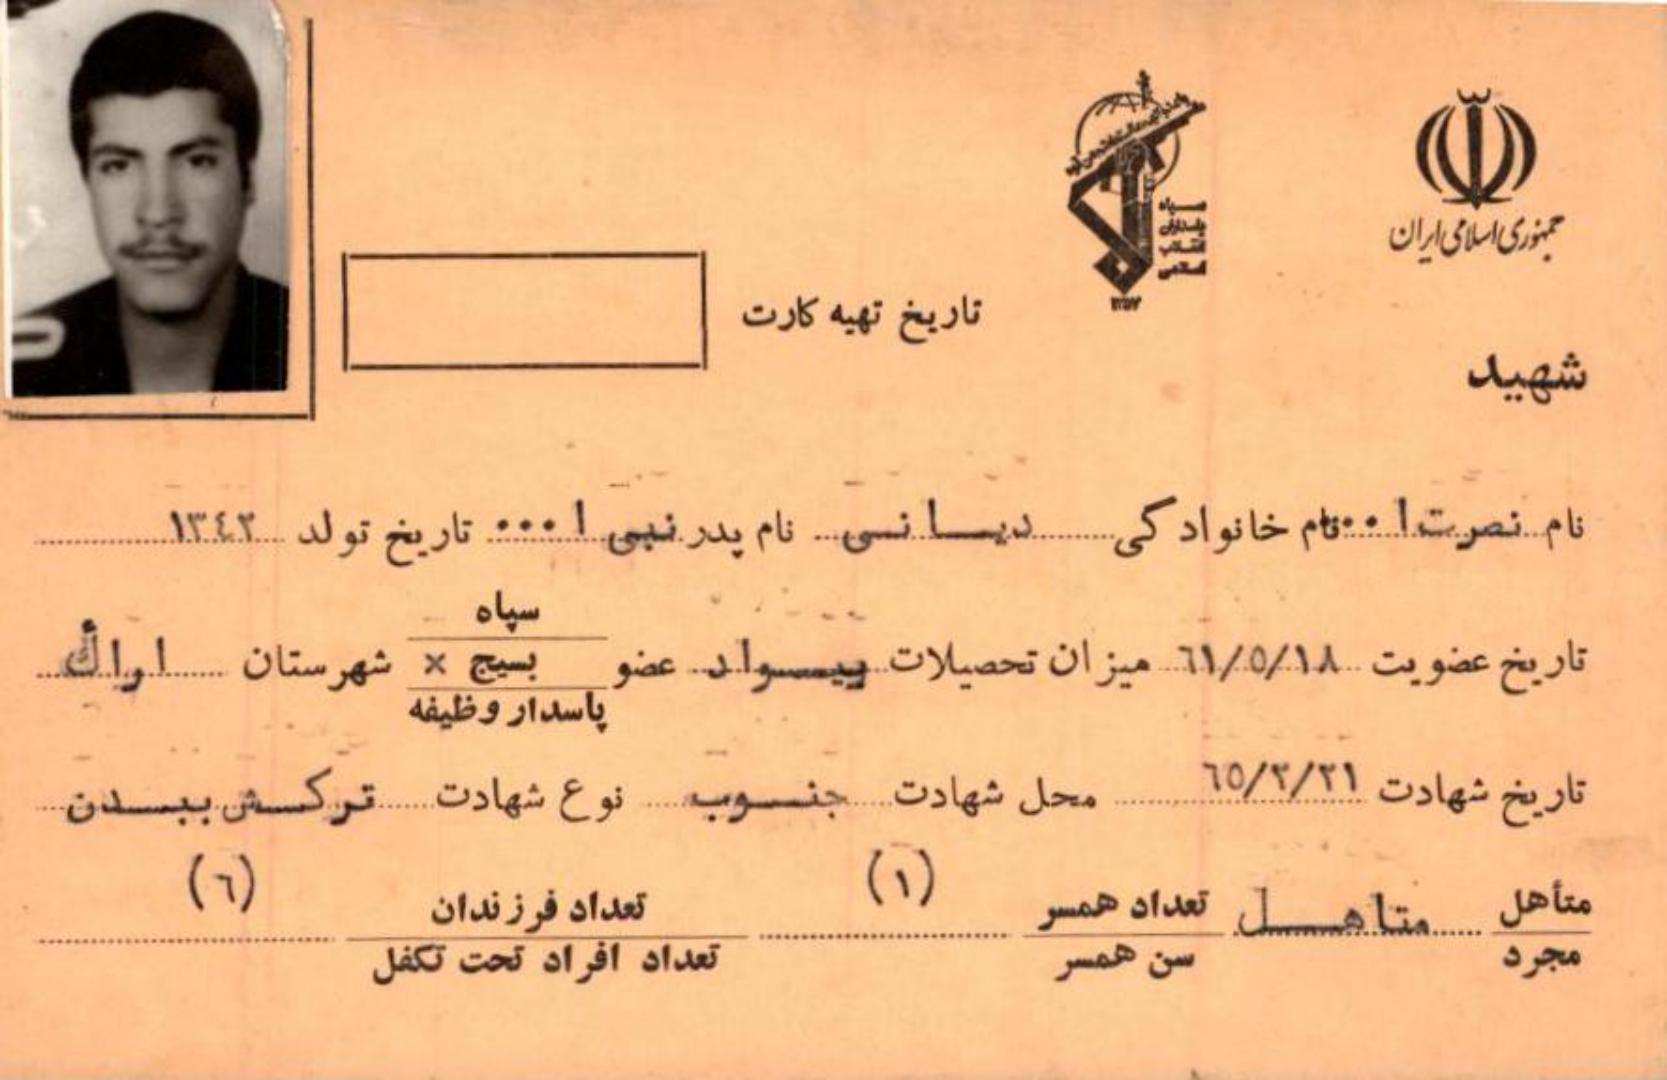 جمهوری اسلامی ایران
سپاه
پاسداران
انقلاب
اسلامی
تاریخ تهیه کارت
شهید
نام نصرت ا... نام خانوادگی دیانی نام پدر نبی ا... تاریخ تولد ۱۳٤۲
سپاه
تاریخ عضویت ٦١/٥/١٨ میزان تحصیلات بیسواد عضو بسیج × شهرستان اراك
پاسدار وظیفه
تاریخ شهادت محل شهادت جنوب نوع شهادت ترکش ببدن
متأهل متاهل تعداد همسر (١) تعداد فرزندان (٦)
مجرد سن همسر تعداد افراد تحت تکفل